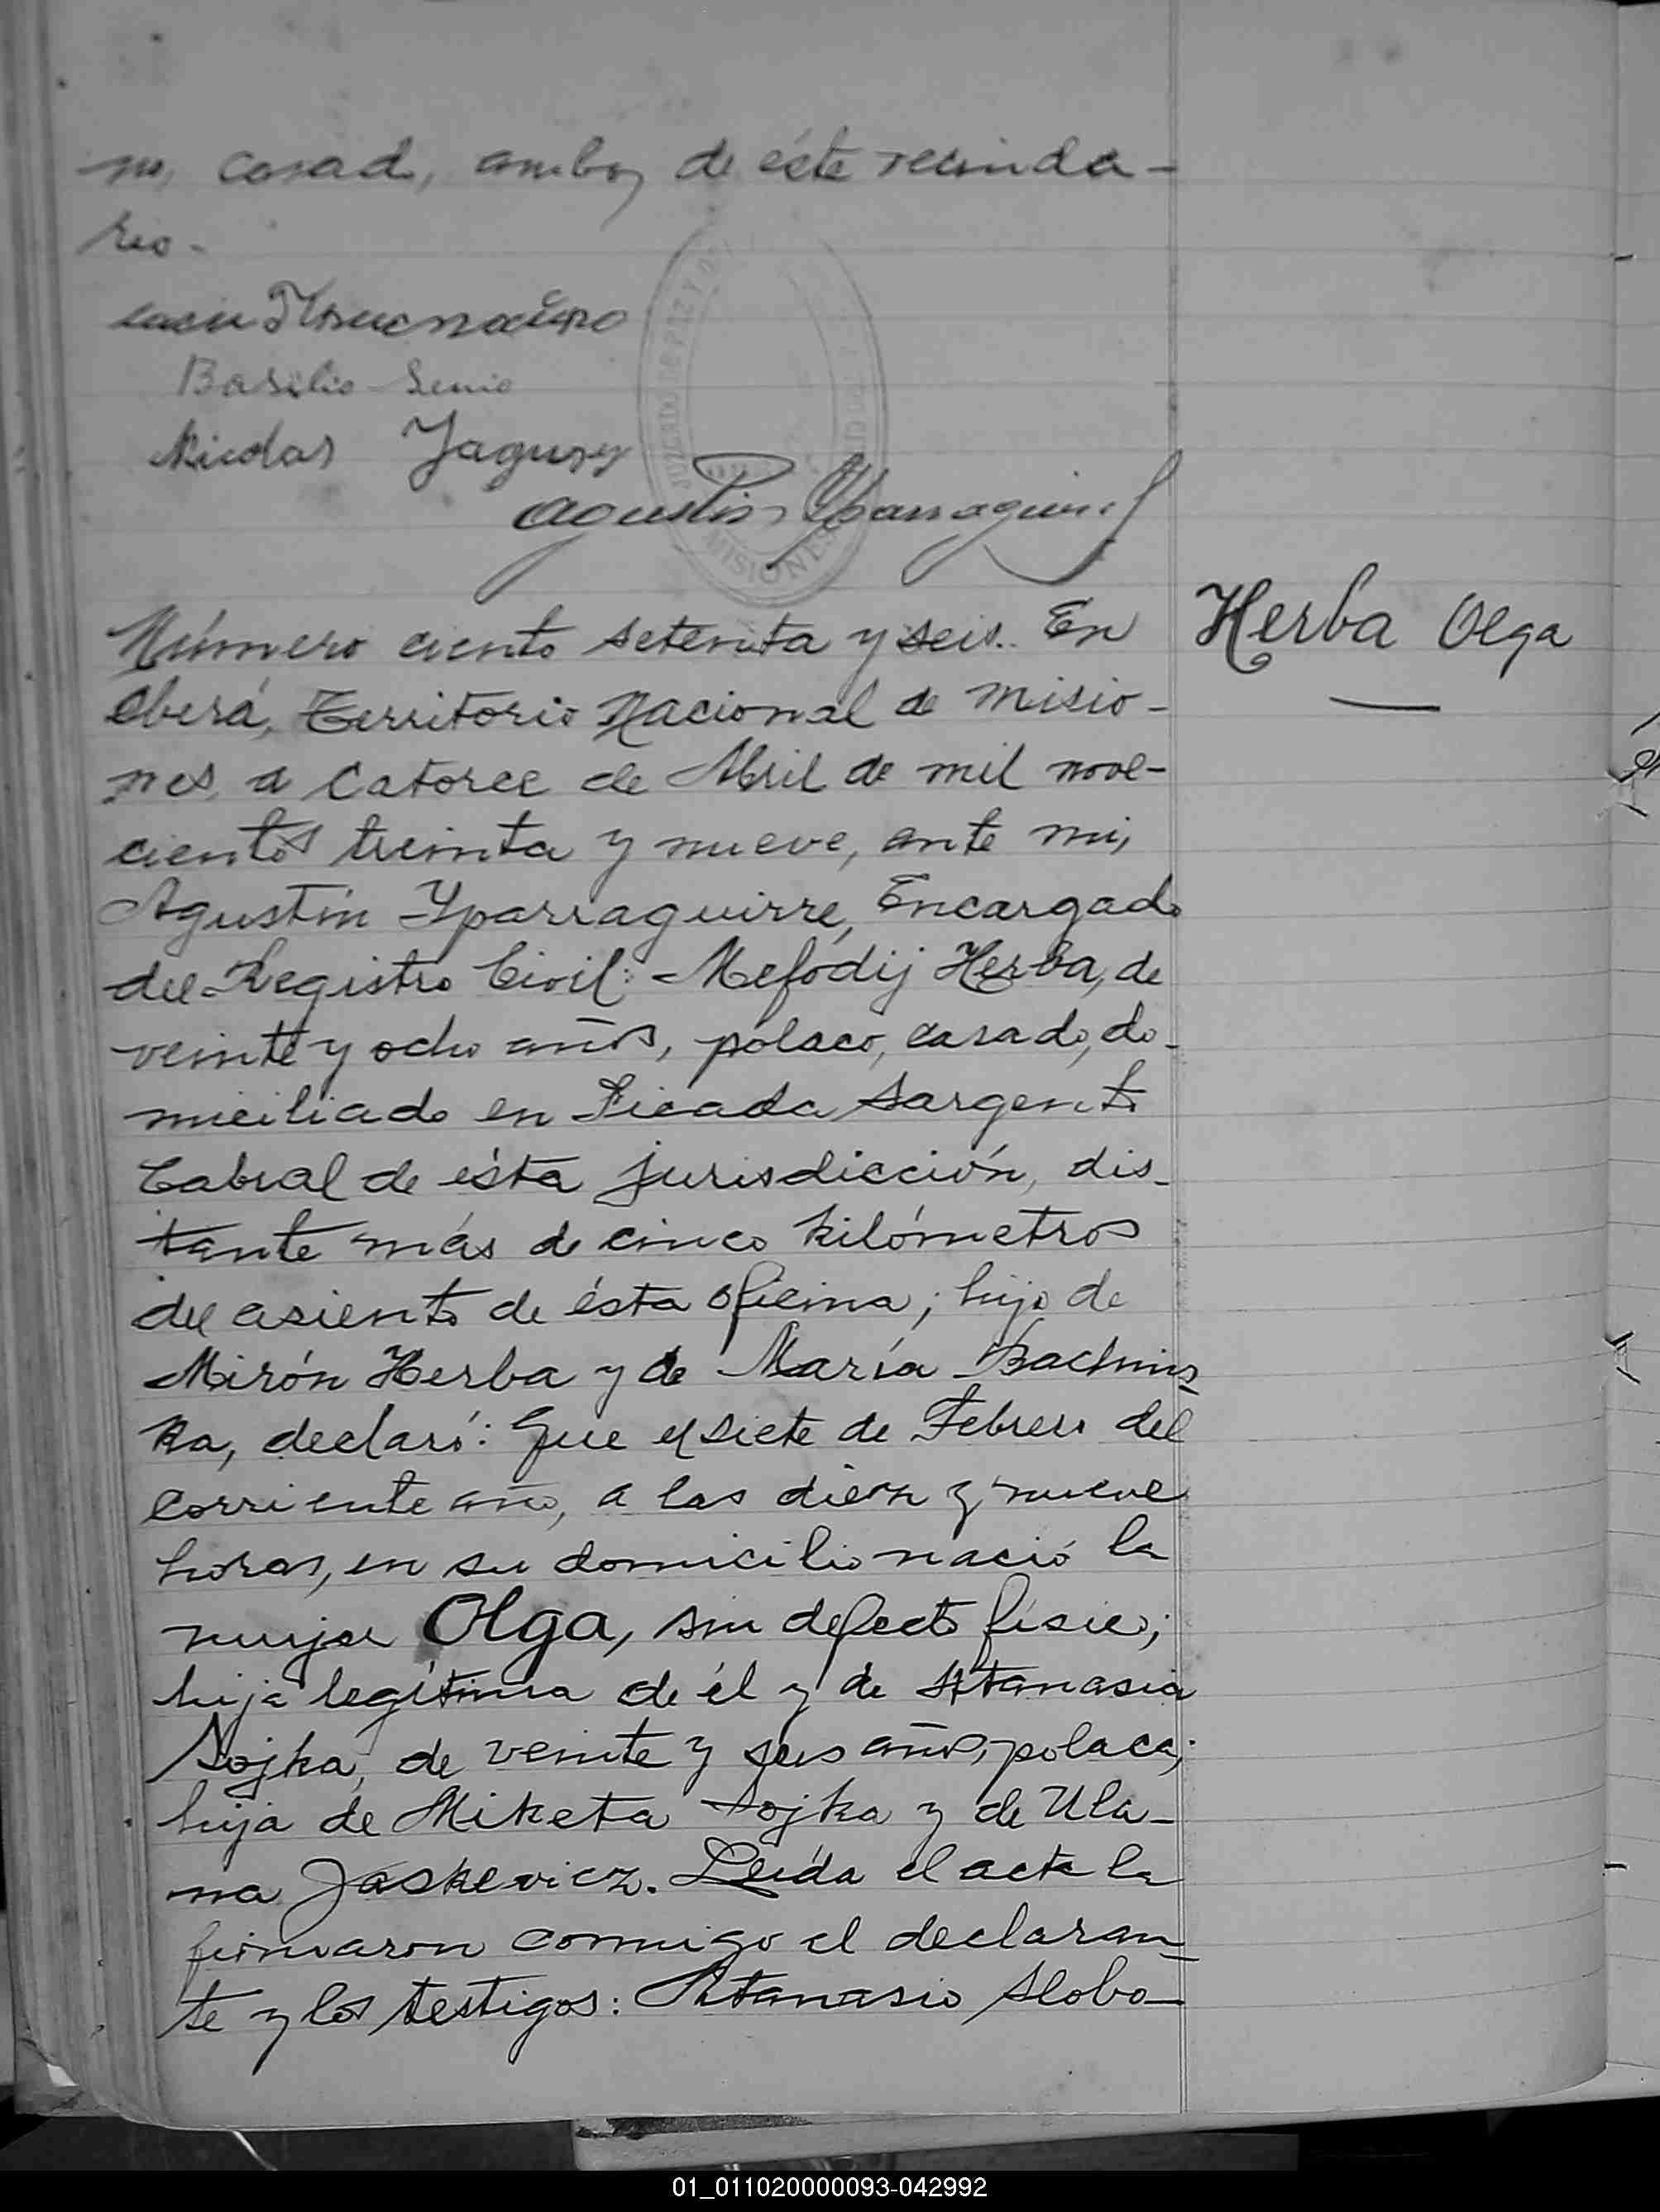 no, casado, ambos de éste vecinda-
rio.-
Basilio Senio
Nicolas Jagusy
JUZGADO DE PAZ Y DEL
MISIONES
Agustin Yparraguirre
Número ciento setenita y seis.. En
Oberá, Territorio Nacional de Misio-
nes, a catorce de Abril de mil nove-
cientos treinta y nueve, ante mi,
Agustín Yparraguirre, Encargado
del Registro Civil: Mefodij Herba, de
veinte y ocho años, polaco, casado, do-
miciliado en Picada Sargento
Cabral de ésta jurisdicción, dis-
tante más de cinco kilómetros
del asiento de ésta oficina; hijo de
Mirón Herba y de María Bachins-
ka, declaró: Que el siete de Febrero del
corriente año, a las diez y nueve
horas, en su domicilio nació la
mujer Olga, sin defecto físico;
hija legítima de él y de Atanasia
Sojka, de veinte y seis años, polaca;
hija de Miketa Sojka y de Ula-
na Jaskevicz. Leída el acta la
firmaron conmigo el declaran-
te y los testigos: Atanasio Slobo-
Herba Olga
01_011020000093-042992